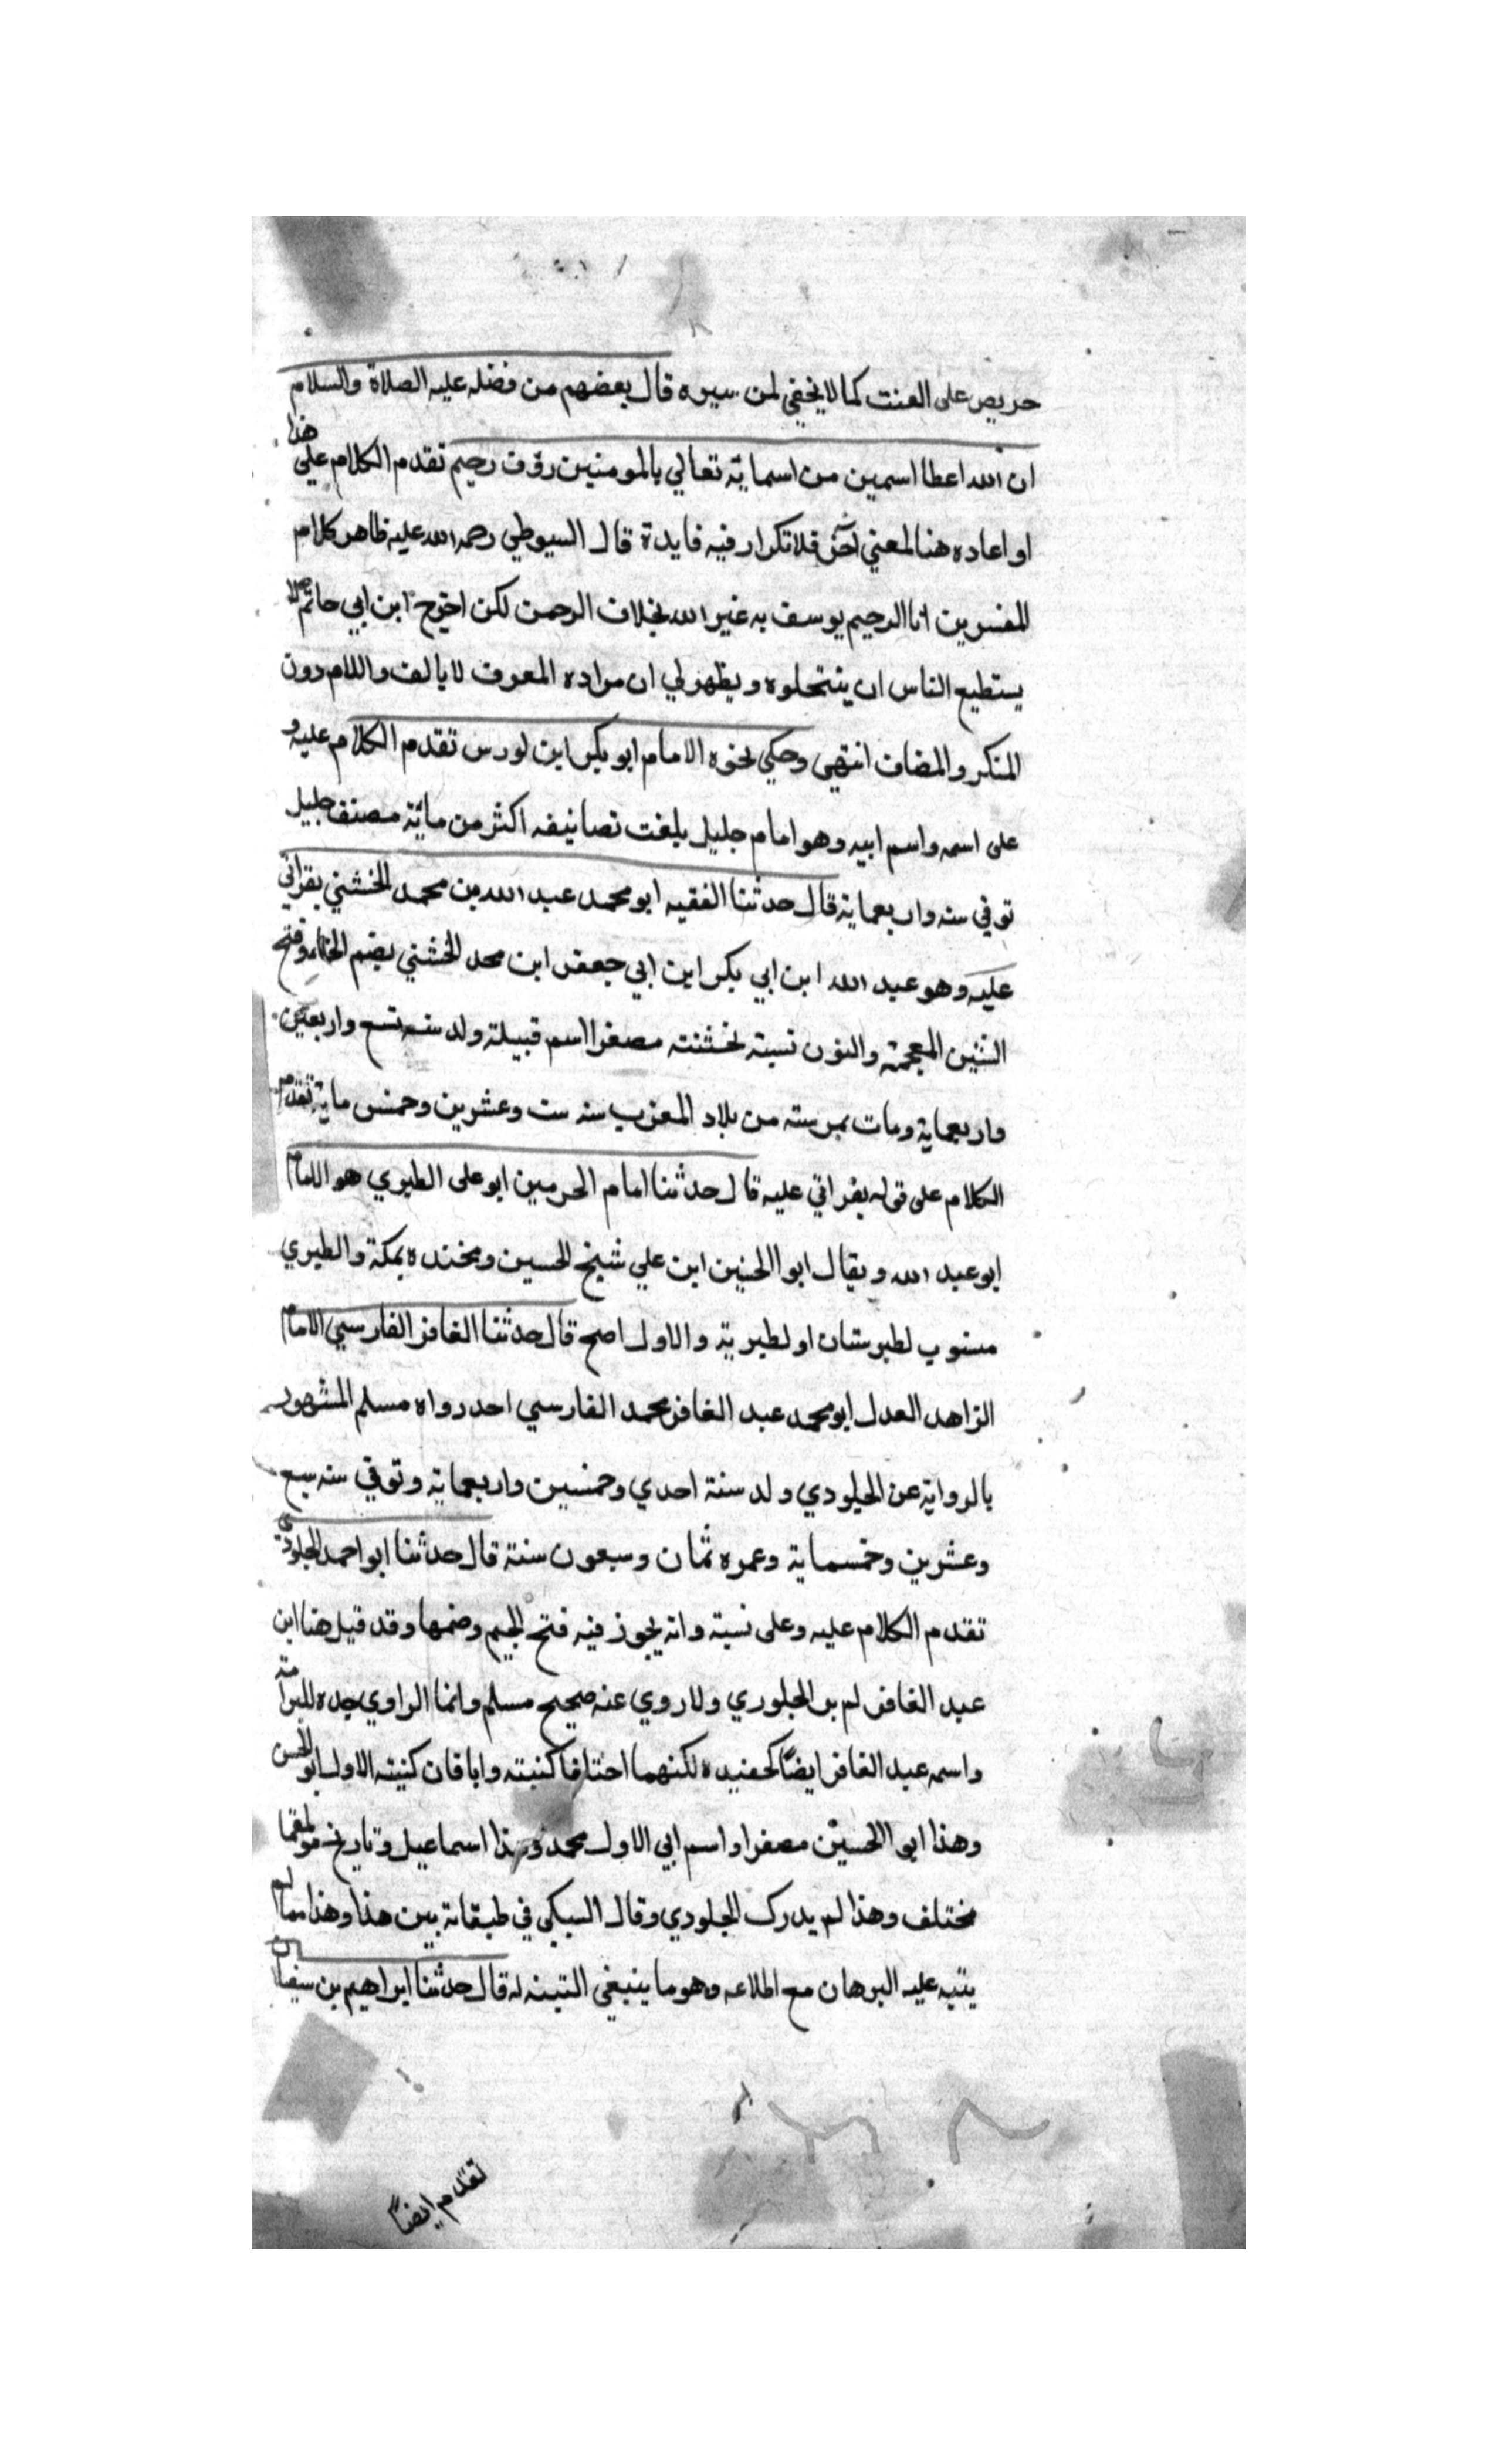 حريص على العنت كما لا يخفي لمن سيره قال بعضهم من فضله عليه الصلاة والسلام
ان الله اعطا اسمين من اسمايه تعالي بالمومنين روف رحيم تقدم الكلام علي هذا
او اعاده هنا لمعني آخر فلا تكرار فيه فايدة قال السيوطي رحمه الله عليه ظاهر كلام
المفسرين انا الرحيم يوسف به غير الله بخلاف الرحمن لكن اخرج ابن ابي حاتم لا
يستطيع الناس ان ينتحلوه ويظهر لي ان مراده المعرف لا بالف واللام دون
المنكر والمضاف انتهي وحكي نحوه الامام ابو بكر ابن لورس تقدم الكلام عليه و
على اسمه واسم ابيه وهو امام جليل بلغت تصانيفه اكثر من مائة مصنف جليل
توفي سنه واربعماية قال حدثنا الفقيه ابو محمد عبد الله بن محمد الخشني بقراتي
عليه وهو عبد الله ابن ابي بكر ابن ابي جعفر ابن محمد الخشني بضم الخاء وفتح
الشين المعجمة والنون نسبة لخشنته مصغرا اسم قبيلة ولد سنه تسع واربعين
واربعماية ومات بمرسته من بلاد المغرب سنه ست وعشرين وخمس ماية تقدم
الكلام على قوله بقراتي عليه قال حدثنا امام الحرمين ابو على الطبري هو الامام
ابو عبد الله ويقال ابو الحنين ابن علي شيخ الحسين ومخنده بمكة والطبري
منسوب لطبرستان او لطبرية والاول اصح قال حدثنا الغافر الفارسي الامام
الزاهد العدل ابو محمد عبد الغافر محمد الفارسي احد رواه مسلم المشهور
بالرواية عن الجلودي ولد سنة احدي وخمسين واربعماية وتوفي سنه سبع
وعشرين وخمسماية وعمره ثمان وسبعون سنة قال حدثنا ابو احمد الجلودي
تقدم الكلام عليه وعلى نسبته وانه يجوز فيه فتح الجيم وضمها وقد قيل هنا ابن
عبد الغافر لم ير الجلوري ولا روي عنه صحيح مسلم وانما الراوي جده
واسمه عبد الغافر ايضًا كحفيده لكنهما اختلفا كنيته وابا فان كنيته الاول ابو الحسن
وهذا ابو الحسين مصغرا واسم ابي الاول محمد وهذا اسماعيل وتاريخ
مختلف وهذا لم يدرك الجلودي وقال السبكي في طبقاته بين هذا وهذا مما لم
يتبه عليه البرهان مع اطلاعه وهو ما ينبغي التبنه له قال حدثنا ابراهيم بن سفيان
تقدم ايضًا